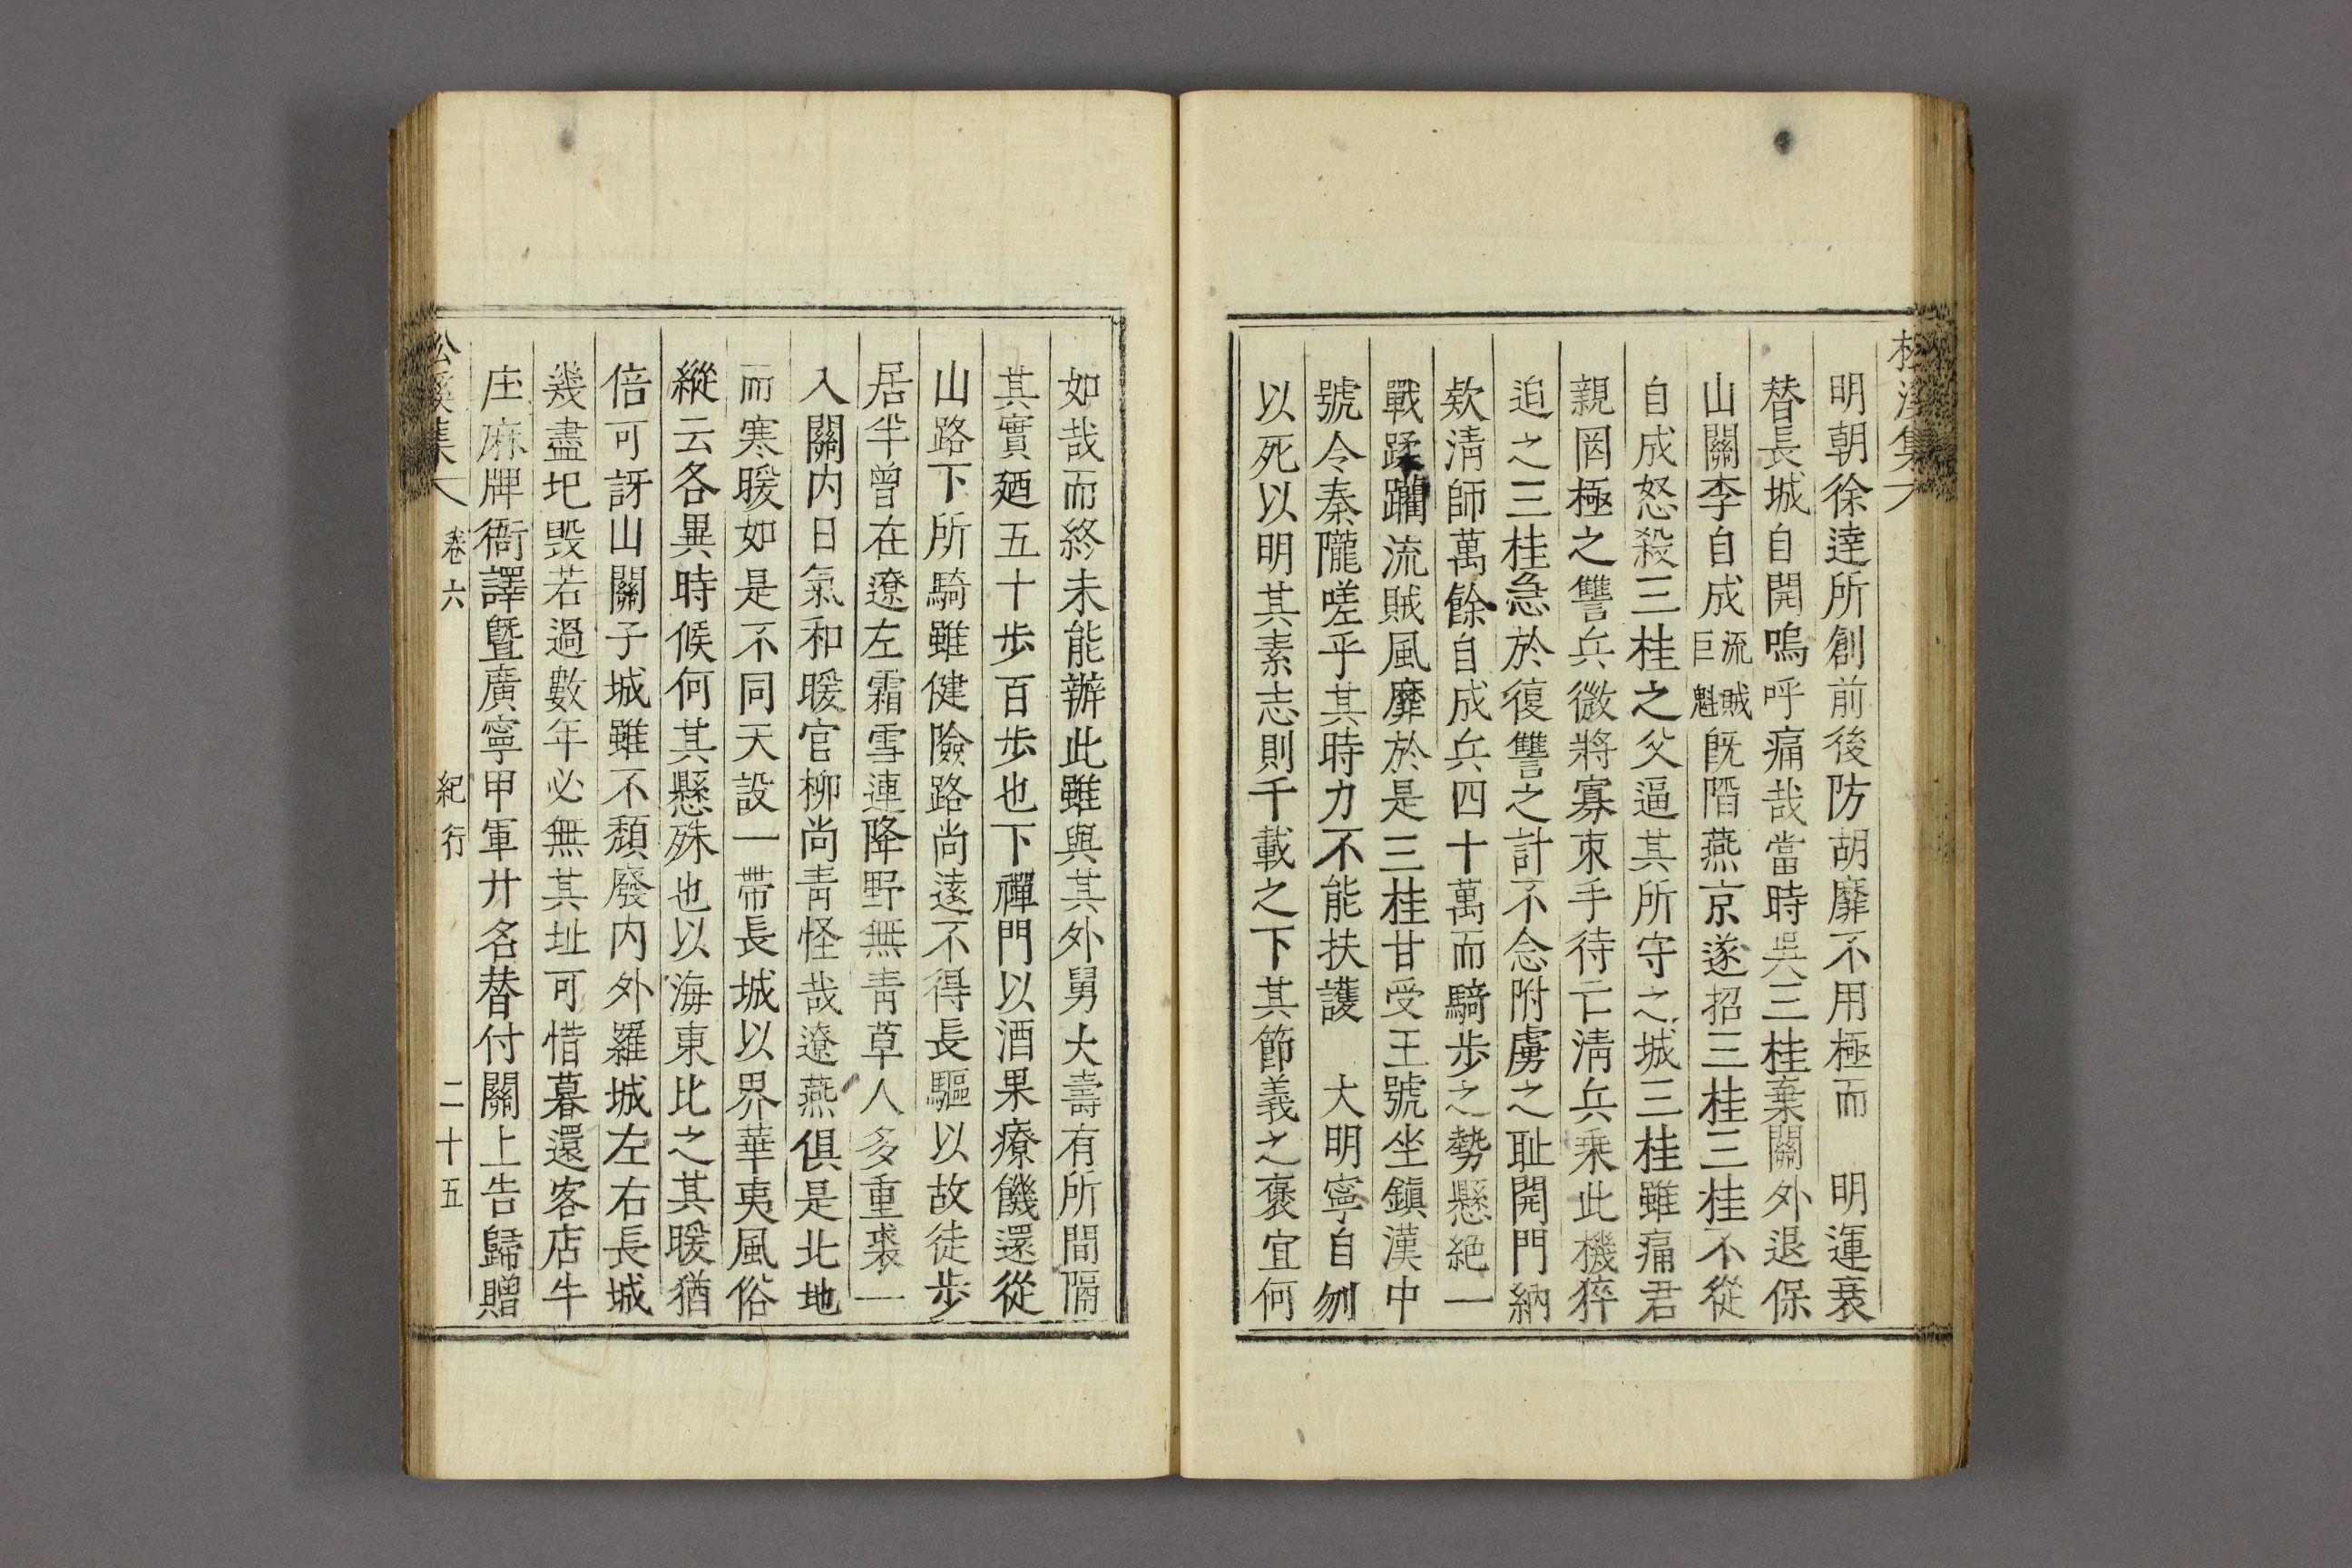 松溪集
明朝徐達所創前後防胡靡不用極而　明運衰
替長城自開嗚呼痛哉當時吳三桂棄關外退保
山關李自成流賊巨魁旣陷燕京遂招三桂三桂不從
自成怒殺三桂之父逼其所守之城三桂雖痛君
親罔極之讐兵微將寡束手待亡淸兵乘此機猝
迫之三桂急於復讐之計不念附虜之耻開門納
欵淸師萬餘自成兵四十萬而騎步之勢懸絶一
戰蹂躙流賊風靡於是三桂甘受王號坐鎭漢中
號令秦隴嗟乎其時力不能扶護　大明寧自刎
以死以明其素志則千載之下其節義之褒宜何
如哉而終未能辦此雖與其外舅大壽有所間隔
其實廼五十步百步也下禪門以酒果療饑還從
山路下所騎雖健險路尚遠不得長驅以故徒步
居半曾在遼左霜雪連降野無靑草人多重裘一
入關内日氣和暖官柳尚靑怪哉遼燕俱是北地
而寒暖如是不同天設一帶長城以界華夷風俗
縱云各異時候何其懸殊也以海東比之其暖猶
倍可訝山關子城雖不頹廢内外羅城左右長城
幾盡圯毁若過數年必無其址可惜暮還客店牛
庄麻牌衙譯曁廣寧甲軍廿名替付關上告歸贈
松溪集 卷六 紀行 二十五